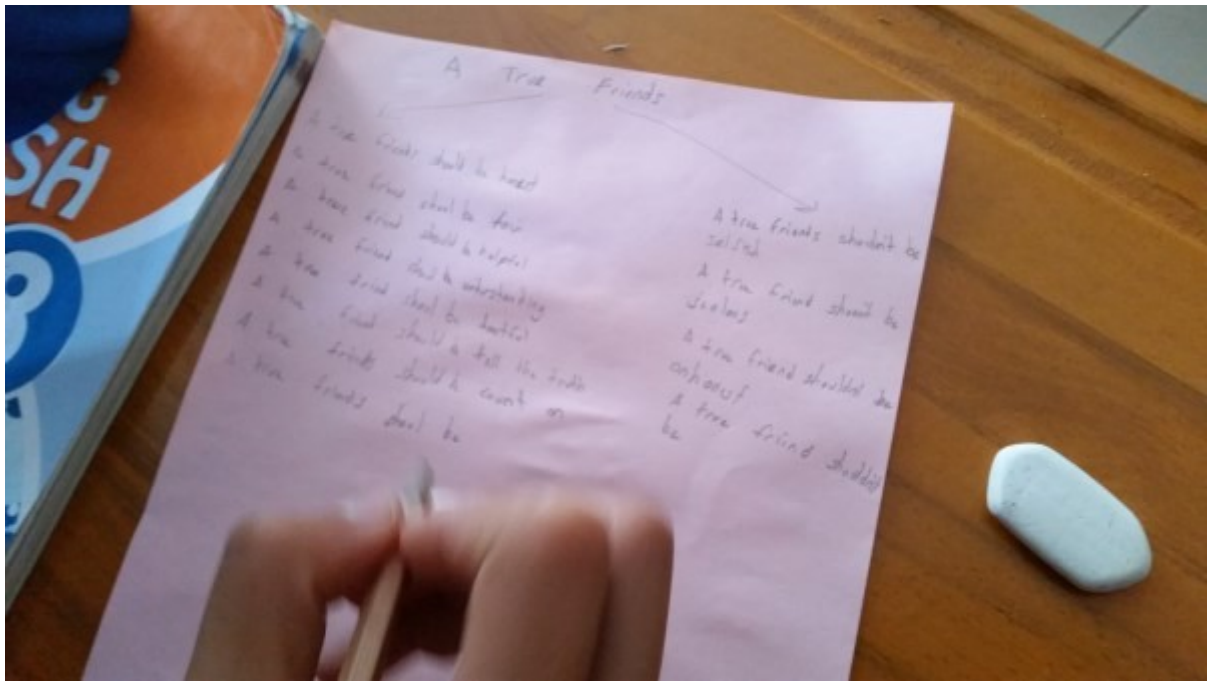 A True Friends
A true friends should be honest
a true friend shoul be fair
A true friend should be helpful
A true friend shoul be understanding
A true friend shoul be
A true friend should be tell the truth
A true friends should be count on
A true friends shoul be
A true friends shouldn't be
selfish
A true friend should't be
Jealous
A true friend shouldn't be
A true friend shouldn't
be
G
SH
8